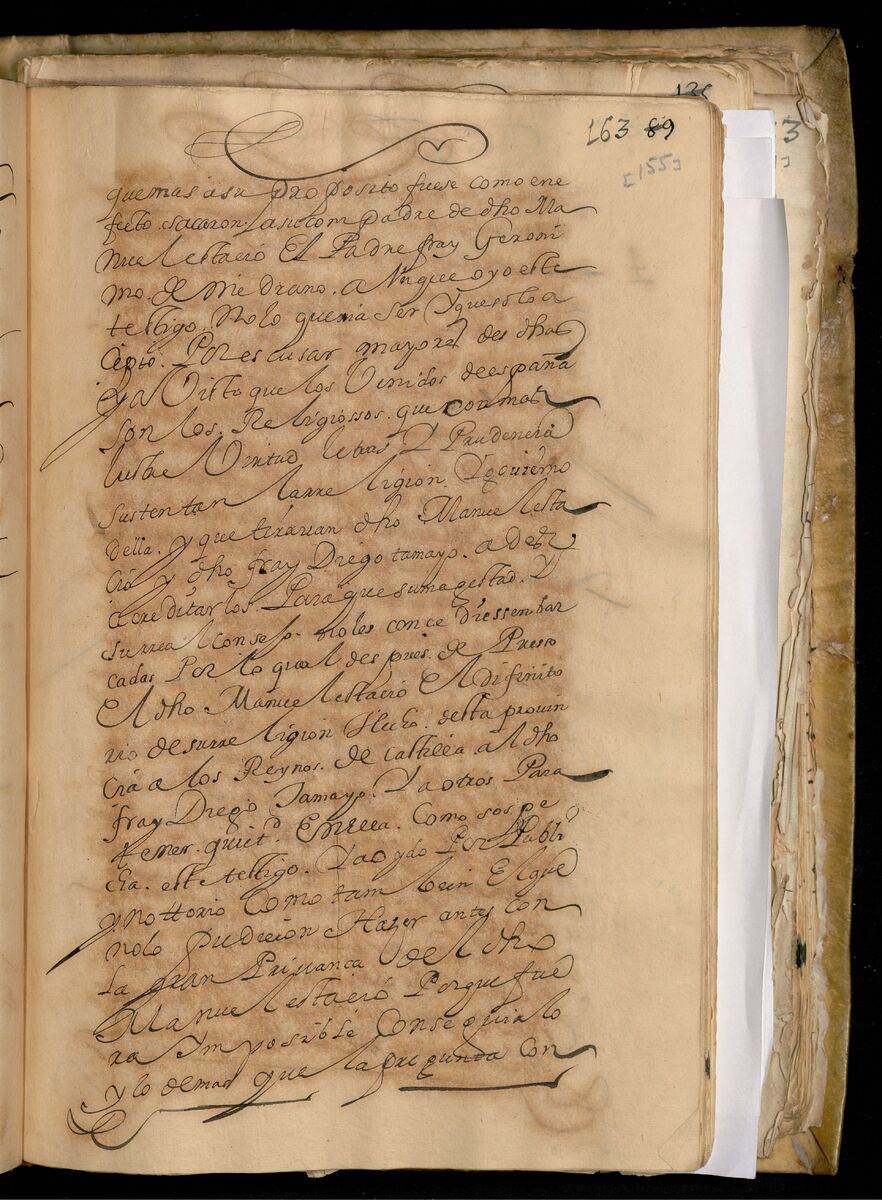 126
163 89
[155]
que mas a su proposito fuese como en e
fecto. sacaron. a su compadre de dho Ma
nuel estacio El Padre fray Geroni
mo. de medrano. aunque oyo este
testigo. No lo queria ser Y que solo a
cepto. Por escusar mayores desdhas
y a Visto que los Venidos de españa
son los. Religiossos. que con mas
lustre Virtud letras. Y Prudencia
sustentan la rre ligion. Y gouierno
della. y que tirauan dho Manuel esta
cio y dho fray Diego tamayo. a des
acreditarlos. Para que su magestad. Y
su rreal Consejo. no les concediessen bar
cadas Por lo qual despues. de Presso
El dho. Manuel estacio El difinito
rio de su rre ligion Hecho. desta prouin
cia a los Reynos. de castilla. al dho
fray Diego Tamayo. Y a otros Para
tener. quiet.d En ella. Como sospe
cha. este testigo. Y a oydo Por Publico
y nottorio Como tam bein El que
no lo pudieron Hazer antes con
la gran Priuanca del dho
Manuel estacio Porque fue
ra Ymposible Conseguirlo
y lo demas que la pregunta con